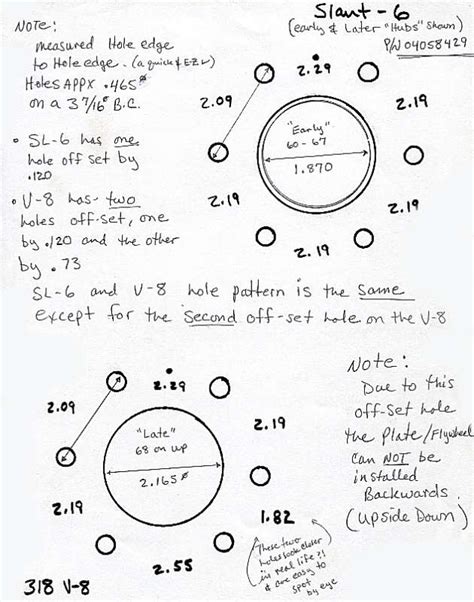 Slant-6
(early & Later "Hubs" Shown)
P/N 04058429
NOTE:
measured Hole edge
to Hole edge. (a quick & E-Z ✓)
Holes APPX .465ø
on a 3 7/16" B.C.
• SL-6 has one
hole off set by
.120
• V-8 has two
holes off-set, one
by .120 and the other
by .73
2.29
2.09
2.19
"Early"
60-67
1.870
2.19
2.19
2.19
SL-6 and V-8 hole pattern is the same
except for the second off-set hole on the V-8
2.29
2.09
2.19
"Late"
68 on up
2.165ø
2.19
1.82
2.55
These two
holes look closer
in real life ?!
& are easy to
spot by eye
318 V-8
Note:
Due to this
off-set hole
the Plate/Flywheel
can NOT be
installed
Backwards.
(Upside Down)